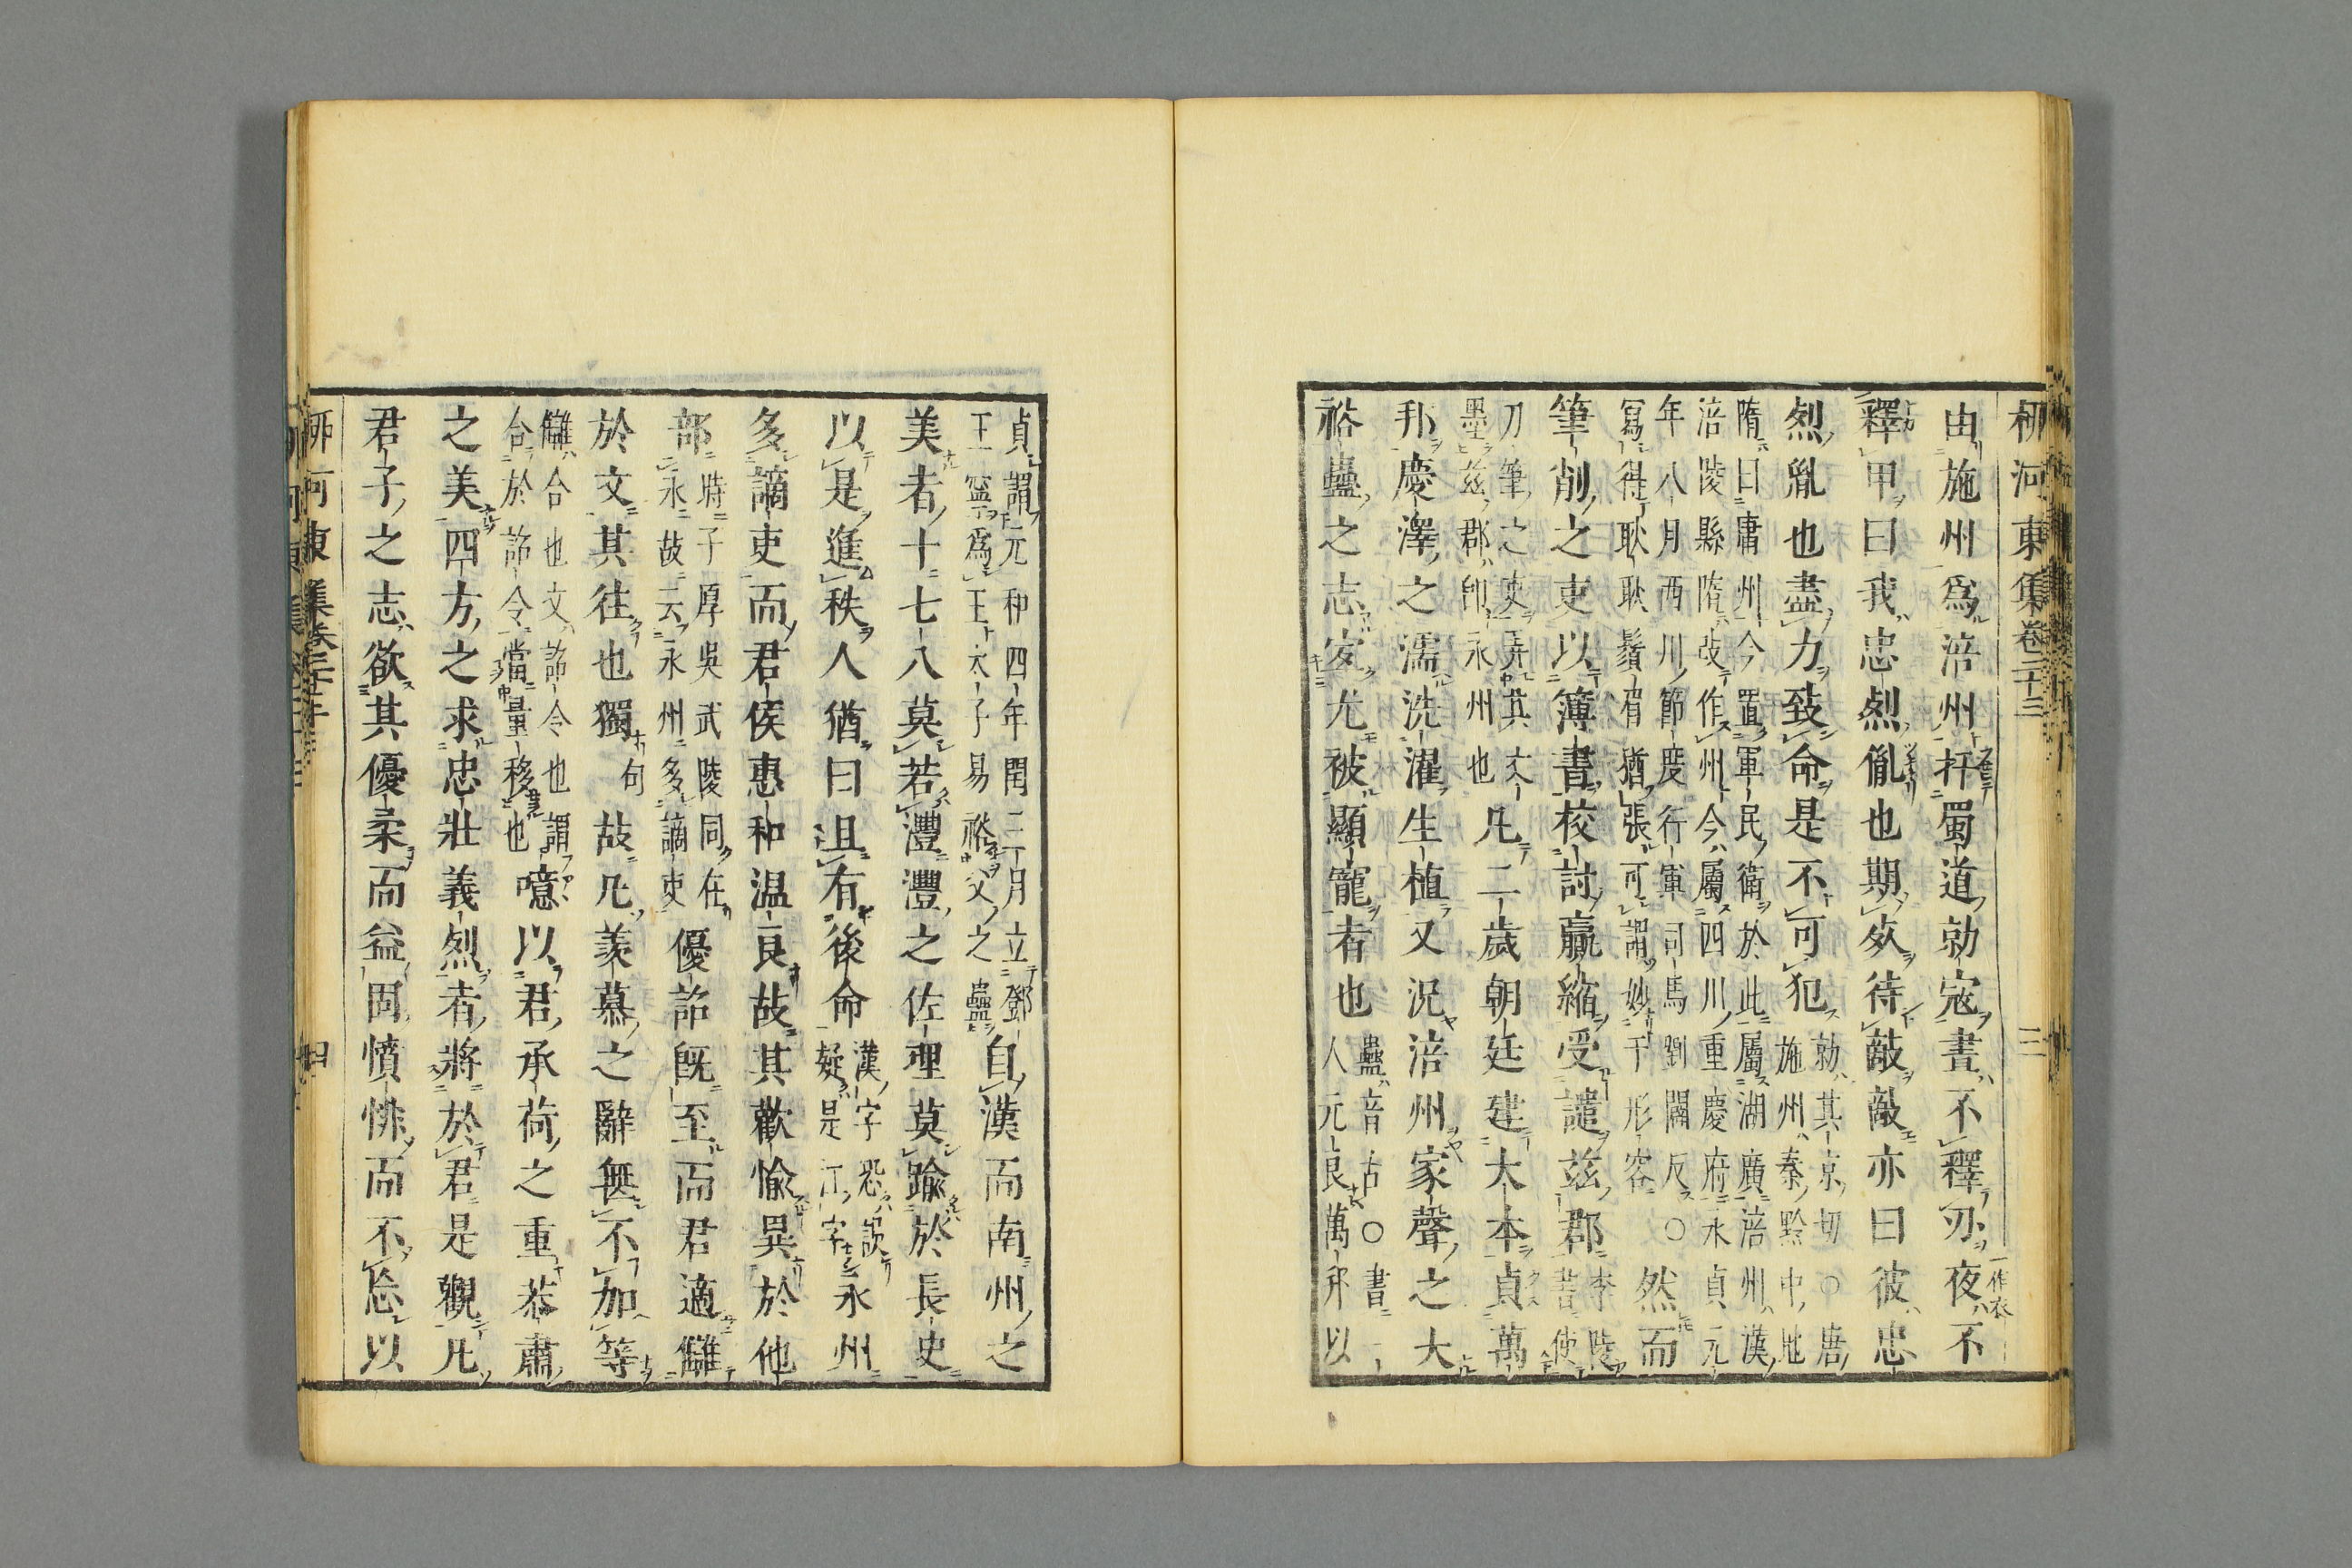 柳河東集卷二十三
三
由施州爲涪州扞蜀道勍寇晝不釋刃夜不
一作衣
釋甲曰我忠烈胤也期死待敵敵亦曰彼忠
烈胤也盡力致命是不可犯
勍其京切○唐
施州秦黔中地
隋曰庸州今置軍民衛於此屬湖廣涪州漢
涪陵縣隋改作州今屬四川重慶府永貞元
年八月西川節度行軍司馬劉闢反○
然而
寫得耿耿鬚眉猶張可謂妙于形容
筆削之吏以簿書校討贏縮受譴茲郡
李陵
昔使
刀筆之吏弄其文
墨茲郡卽永州也
凡二歲朝廷建大本貞萬
邦慶澤之濡洗濯生植又況涪州家聲之大
裕蠱之志宜尤被顯寵者也
蠱音古○書一
人元良萬邦以
貞謂元和四年閏三月立鄧
王寧爲王太子易裕父之蠱
自漢而南州之
美者十七八莫若澧澧之佐理莫踰於長史
以是進秩人猶曰且有後命
漢字恐誤
疑是江字
永州
多謫吏而君侯惠和温良故其歡愉異於他
部
時子厚吳武陵同在
永故云永州多謫吏
優詔旣至而君適讎
於文其往也獨
句
故凡羨慕之辭無不加等
讎合也文詔令也謂
合於詔令當量移也
噫以君承荷之重恭肅
之美四方之求忠壯義烈者將於君是觀凡
君子之志欲其優柔而益固憤悱而不忘以
柳河東集卷二十三
四